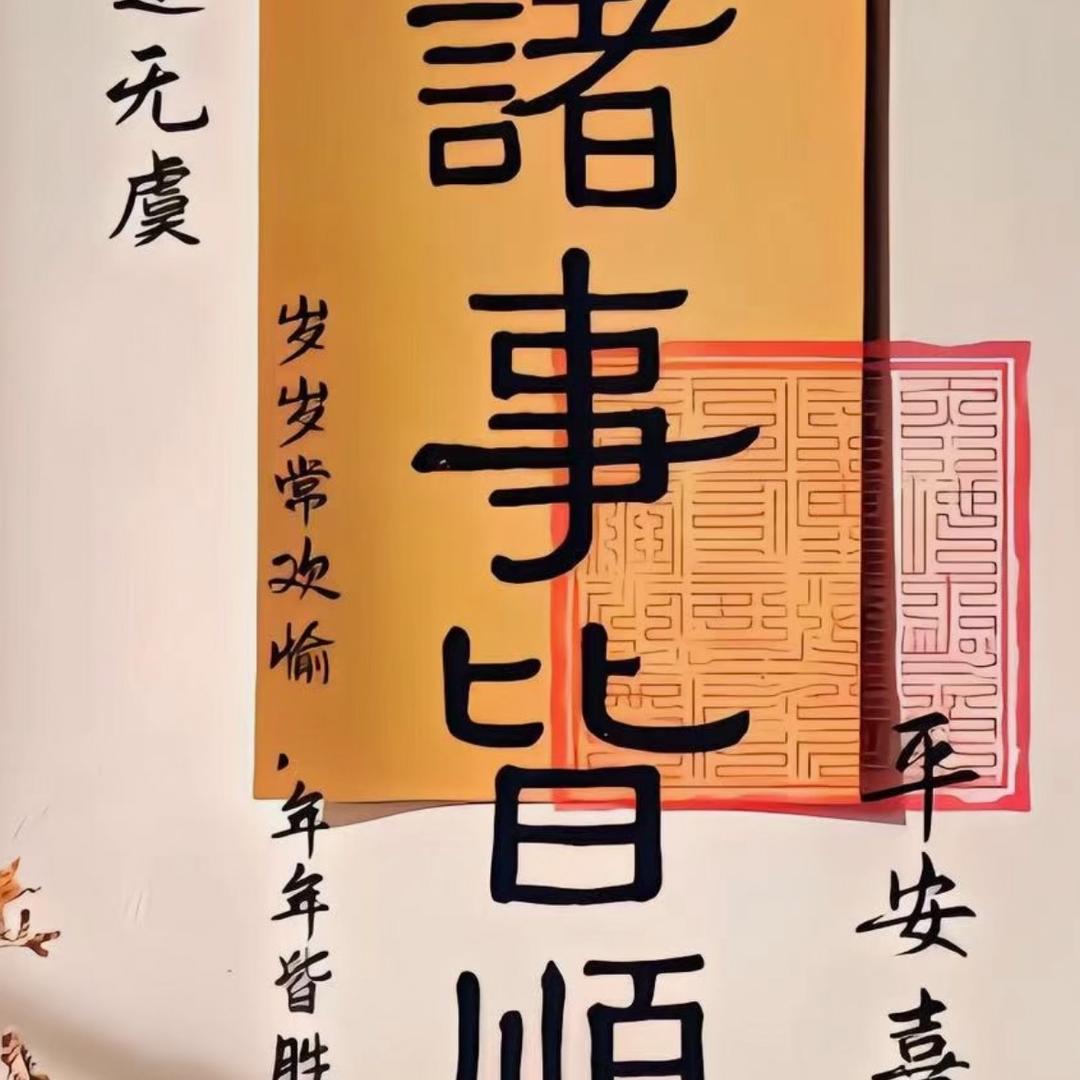 諸事皆順
平安喜
岁岁常欢愉
，年年皆胜
无虞